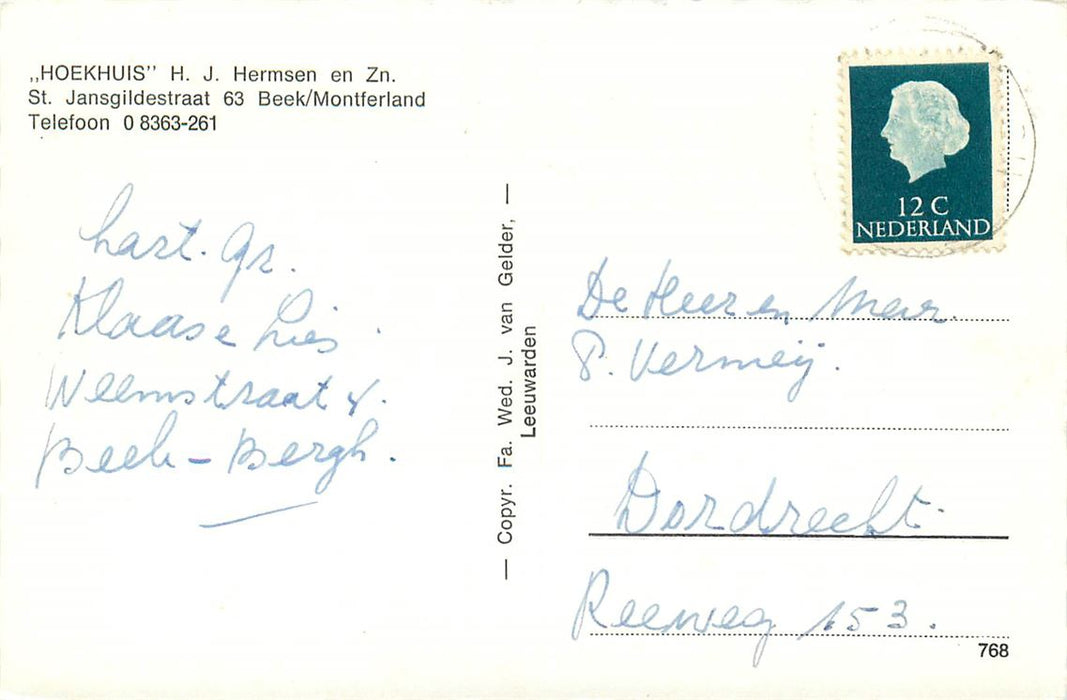 „HOEKHUIS” H. J. Hermsen en Zn.
St. Jansgildestraat 63 Beek/Montferland
Telefoon 0 8363-261
hart. gr.
Klaas e Lies
Weemstraat 8.
Beek - Bergh.
— Copyr. Fa. Wed. J. van Gelder, —
Leeuwarden
12 C
NEDERLAND
De Heer en Mevr.
P. Vermeij.
Dordrecht.
Reeweg 153.
768